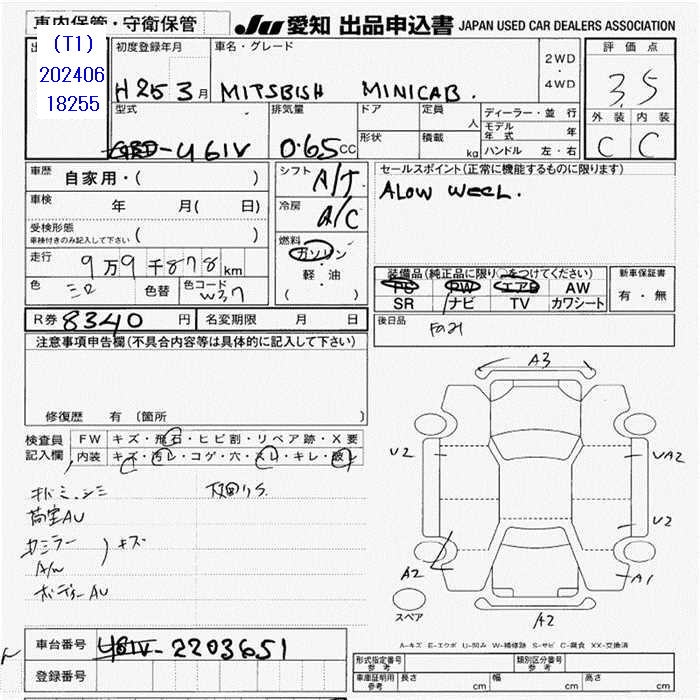 車内保管・守衛保管
JU 愛知 出品申込書 JAPAN USED CAR DEALERS ASSOCIATION
(T1)
202406
18255
初度登録年月
H 25 3月
車名・グレード
MITSBISH MINICAB.
2WD
・
4WD
評価点
3.5
外装 内装
C C
型式
GBD-U61V
排気量
0.65 CC
ドア
形状
定員
人
積載
kg
ディーラー・並行
モデル年式 年
ハンドル 左・右
車歴 自家用・( )
車検 年 月( 日)
受検形態
車検付きのみ記入して下さい ( )
走行 9万9千878km
色 シロ 色替 色コード W37
シフト A/T
冷房 A/C
燃料
ガソリン
・
軽・油
( )
セールスポイント(正常に機能するものに限ります)
ALOW WEEL.
装備品(純正品に限り○をつけてください)
PS PW エアB AW
SR ナビ TV カワシート
新車保証書
有・無
R券 8340円 名変期限 月 日
後日品
注意事項申告欄(不具合内容等は具体的に記入して下さい)
修復歴 有 〔箇所 〕
検査員記入欄
FW キズ・飛石・ヒビ割・リペア跡・X要
内装 キズ・汚レ・コゲ・穴・スレ・キレ・破レ
荷室AU
カミラー
A/W
キズ
ボディーAU
A3
U2
UA2
U2
A2
A1
A2
スペア
A-キズ E-エクボ U-凹み W-補修跡 S-サビ C-腐食 XX-交換済
車台番号 U61V-2203651
登録番号
形式指定番号 参考
類別区分番号 参考
車庫証明用 参考 長さ cm 幅 cm 高さ cm